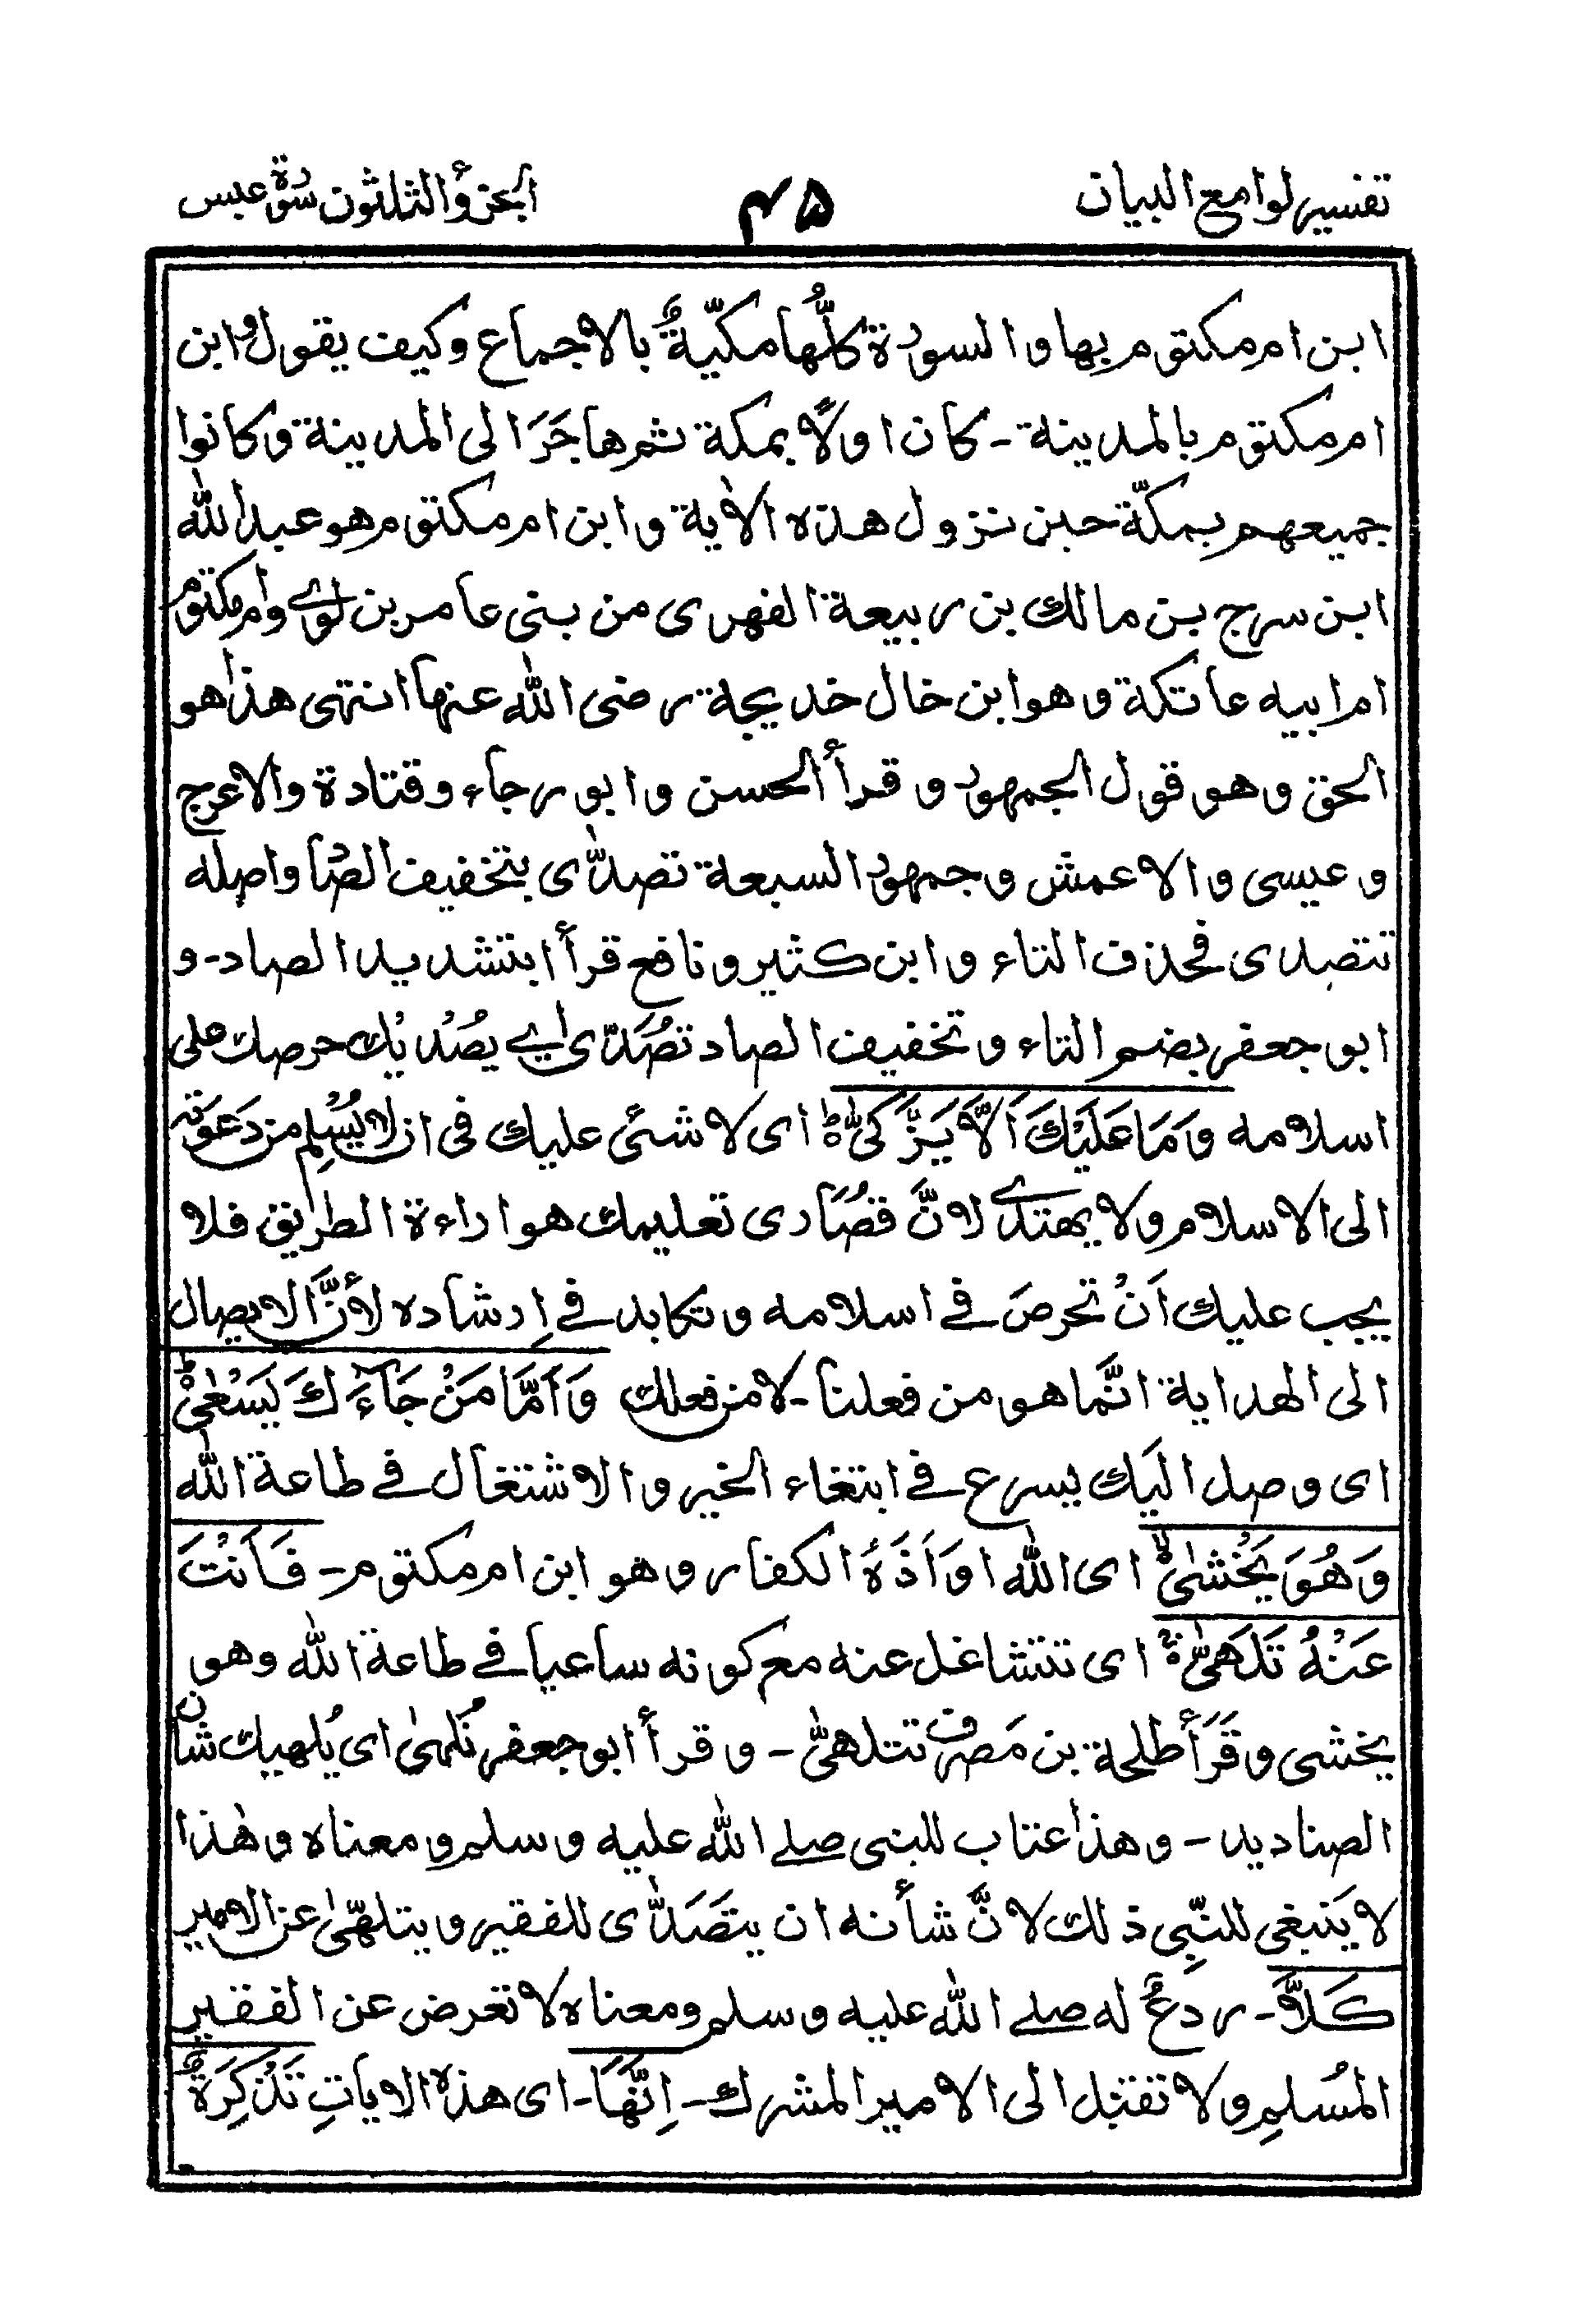 تفسير لوامع البيان ٤٥ الجزؤ الثلثون سورة عبس
ابن ام مكتوم بها والسورة كلُّها مكيّةٌ بالاجماع وكيف يقول وابن
ام مكتوم بالمدينة - كان اولًا بمكة ثم هاجَرَ الى المدينة وكانوا
جميعهم بمكّة حين نزول هذه الاٰية وابن ام مكتوم هو عبد الله
ابن سرج بن مالك بن ربيعة الفهرى من بنى عامر بن لوے وام مكتوم
ام ابيه عاتكة وهو ابن خال خديجة رضى الله عنها انتهى هذا هو
الحق وهو قول الجمهور و قرأ الحسن وابو رجاء وقتادة والاعرج
و عيسى والاعمش وجمهور السبعة تصدّٰى بتخفيف الصاد واصله
تتصدى فحذف التاء وابن كثير ونافع قرأ ابتشديد الصاد - و
ابو جعفر بضم التاء و تخفيف الصاد تصَُدّى اے يصُدُيك حرصك على
اسلامه وَمَا عَلَيْكَ اَلَّا يَزَّكّٰىۙ اى لا شئ عليك فى ان لا يُسْلِم من دَعَوته
الى الاسلام ولا يهتدے لانَّ قصَُارى تعليمك هو اراءة الطريق فلا
يجب عليك اَنْ تحرصَ فے اسلامه وتكابد فے اِرشاده لأنَّ الايصال
الى الهداية انَّما هو من فعلنا - لا من فعلك وَاَمَّا مَنْ جَآءَكَ يَسْعٰىۙ
اى وصل اليك يسرع فے ابتغاء الخير والاشتغال فے طاعة الله
وَهُوَ يَخْشٰىۙ اى الله اوَ اَذَهُ الكفار وهو ابن ام مكتوم - فَاَنْتَ
عَنْهُ تَلَهّٰىۚ اى تتشاغل عنه مع كونه ساعيا فے طاعة الله وهو
يخشى وقَرَأ طلحة بن مَصرف تتلهىّٰ - و قرأ ابو جعفر تُلهىٰ اى يُلهيك شان
الصناديد - وهذا عتاب للنبى صلے الله عليه وسلم ومعناه وهٰذا
لا يَنبغى للنّبِى ذلك لانَّ شأنه ان يتصَدّٰى للفقير ويتلهّىٰ عن الامير
كَلَّآ - ردعٌ له صلے الله عليه وسلم ومعناه لا تعرض عن الفقير
المُسلمِ ولا تقبل الى الامير المشرك - اِنَّهَا - اى هذه الاياتِ تَذْكِرَةٌ